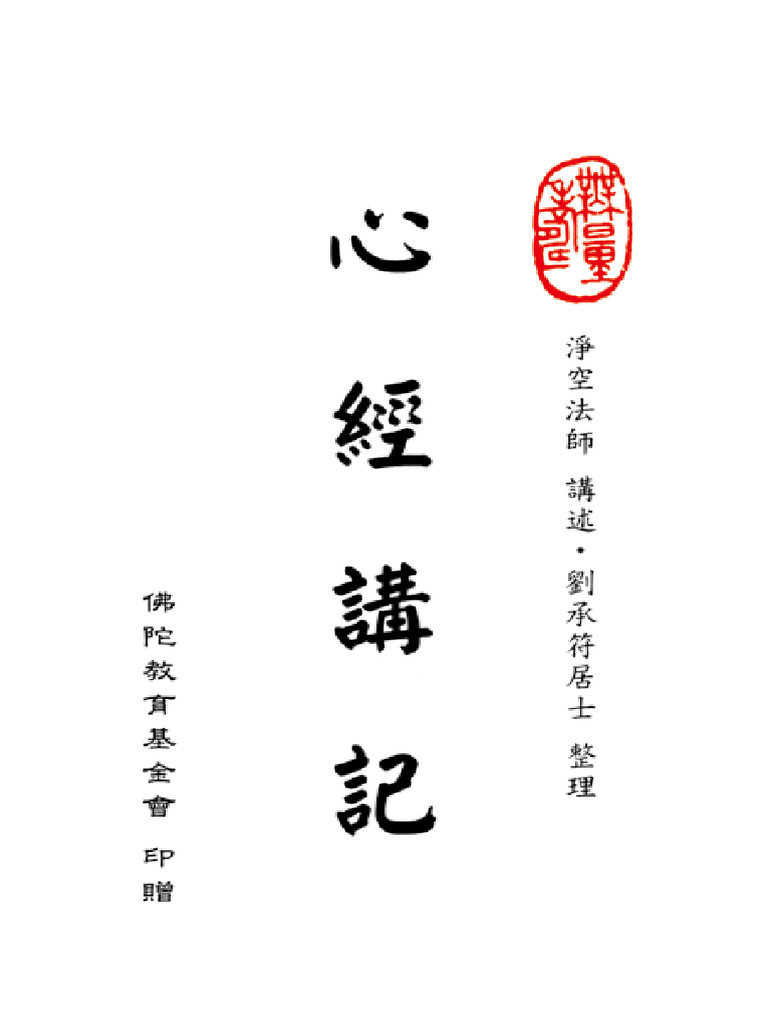 淨空法師 講述・劉承符居士 整理
心經講記
佛陀教育基金會 印贈